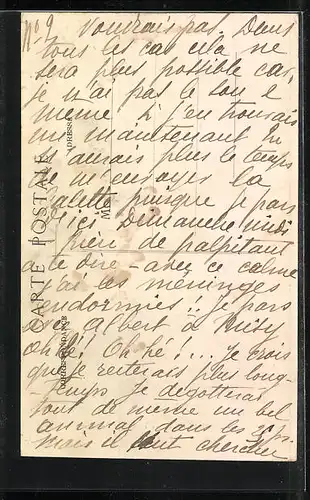 No 9 voudrais pas. Dans
tous les cas cela ne
sera plus possible car,
je n'ai pas le sou &
même si j'en trouvais
un maintenant tu
n'aurais plus le temps
de m'envoyer la
galette puisque je pars
d'ici Dimanche midi
rien de palpitant
à te dire - avec ce calme
j'ai les méninges
endormies!! Je pars
avec Albert à
Ohé! Oh hé!... Je crois
que je resterais plus long-
temps je dégotterais
tout de même un bel
animal dans les
mais il faut chercher
CARTE POSTALE
CORRESPONDANCE
ADRESSE